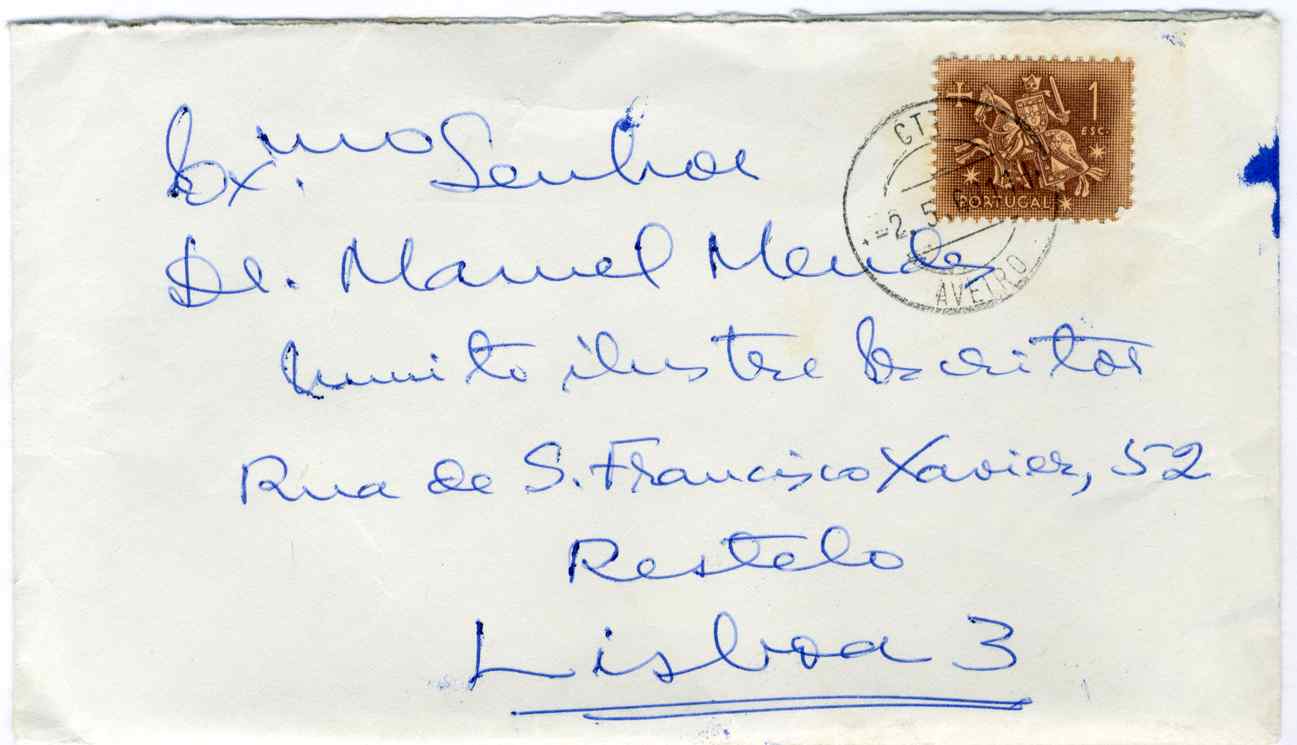 Ex.mo Senhor
Dr. Manuel Mendes
muito ilustre Escritor
Rua de S. Francisco Xavier, 52
Restelo
Lisboa 3
1
ESC.
PORTUGAL
CTT
-2. 5
AVEIRO